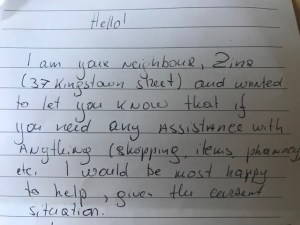 Hello!
I am your neighbour, Zina
(37 Kingstown Street) and wanted
to let you know that if
you need any assistance with
anything (shopping, items, pharmacy
etc. I would be most happy
to help, given the current
situation.